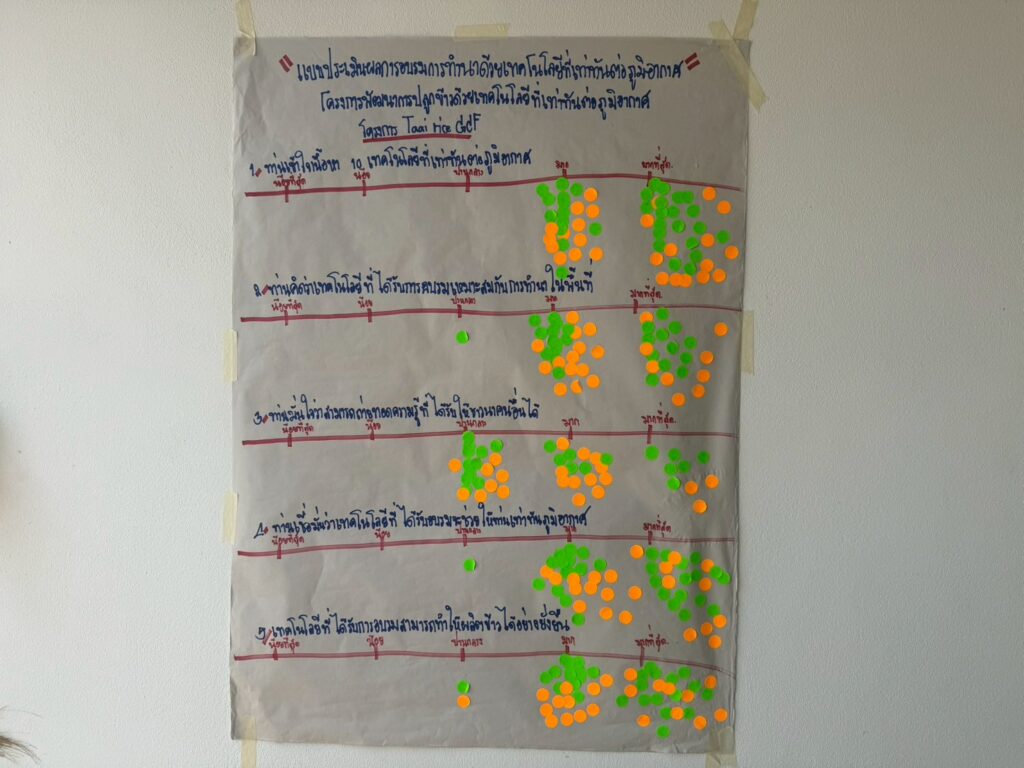 "แบบประเมินผลการอบรมการทำนาด้วยเทคโนโลยีที่เท่าทันต่อภูมิอากาศ"
โครงการพัฒนาการปลูกข้าวด้วยเทคโนโลยีที่เท่าทันต่อภูมิอากาศ
โครงการ Thai rice GCF
1. ท่านเข้าใจเนื้อหา 10 เทคโนโลยีที่เท่าทันต่อภูมิอากาศ
น้อยที่สุด น้อย ปานกลาง มาก มากที่สุด
2. ท่านคิดว่าเทคโนโลยีที่ได้รับการอบรมเหมาะสมกับการทำนาในพื้นที่
น้อยที่สุด น้อย ปานกลาง มาก มากที่สุด
3. ท่านมั่นใจว่าสามารถถ่ายทอดความรู้ที่ได้รับให้ชาวนาคนอื่นได้
น้อยที่สุด น้อย ปานกลาง มาก มากที่สุด
4. ท่านเชื่อมั่นว่าเทคโนโลยีที่ได้รับอบรมจะช่วยให้ท่านเท่าทันภูมิอากาศ
น้อยที่สุด น้อย ปานกลาง มาก มากที่สุด
5. เทคโนโลยีที่ได้รับการอบรมสามารถทำให้ผลิตข้าวได้อย่างยั่งยืน
น้อยที่สุด น้อย ปานกลาง มาก มากที่สุด